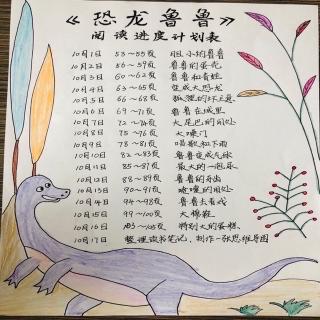 《恐龙鲁鲁》
阅读进度计划表
10月1日 53—55页 胆小的鲁鲁
10月2日 56—59页 鲁鲁的蛋壳
10月3日 60—62页 鲁鲁和青蛙
10月4日 63—65页 变成大恐龙
10月5日 66—68页 狐狸的坏主意
10月6日 69—71页 鲁鲁在城里
10月7日 72—74页 大尾巴的用处
10月8日 75—76页 大嗓门
10月9日 78—81页 唱歌和下雨
10月10日 82—83页 鲁鲁变成气球
10月11日 85—87页 最大的一把伞
10月12日 88—89页 鲁鲁的牙齿
10月13日 90—91页 喷嚏的用处
10月14日 94—98页 鲁鲁去看戏
10月15日 99—100页 大棉鞋
10月16日 103—105页 特别大的蛋糕
10月17日 整理读书笔记，制作一张思维导图